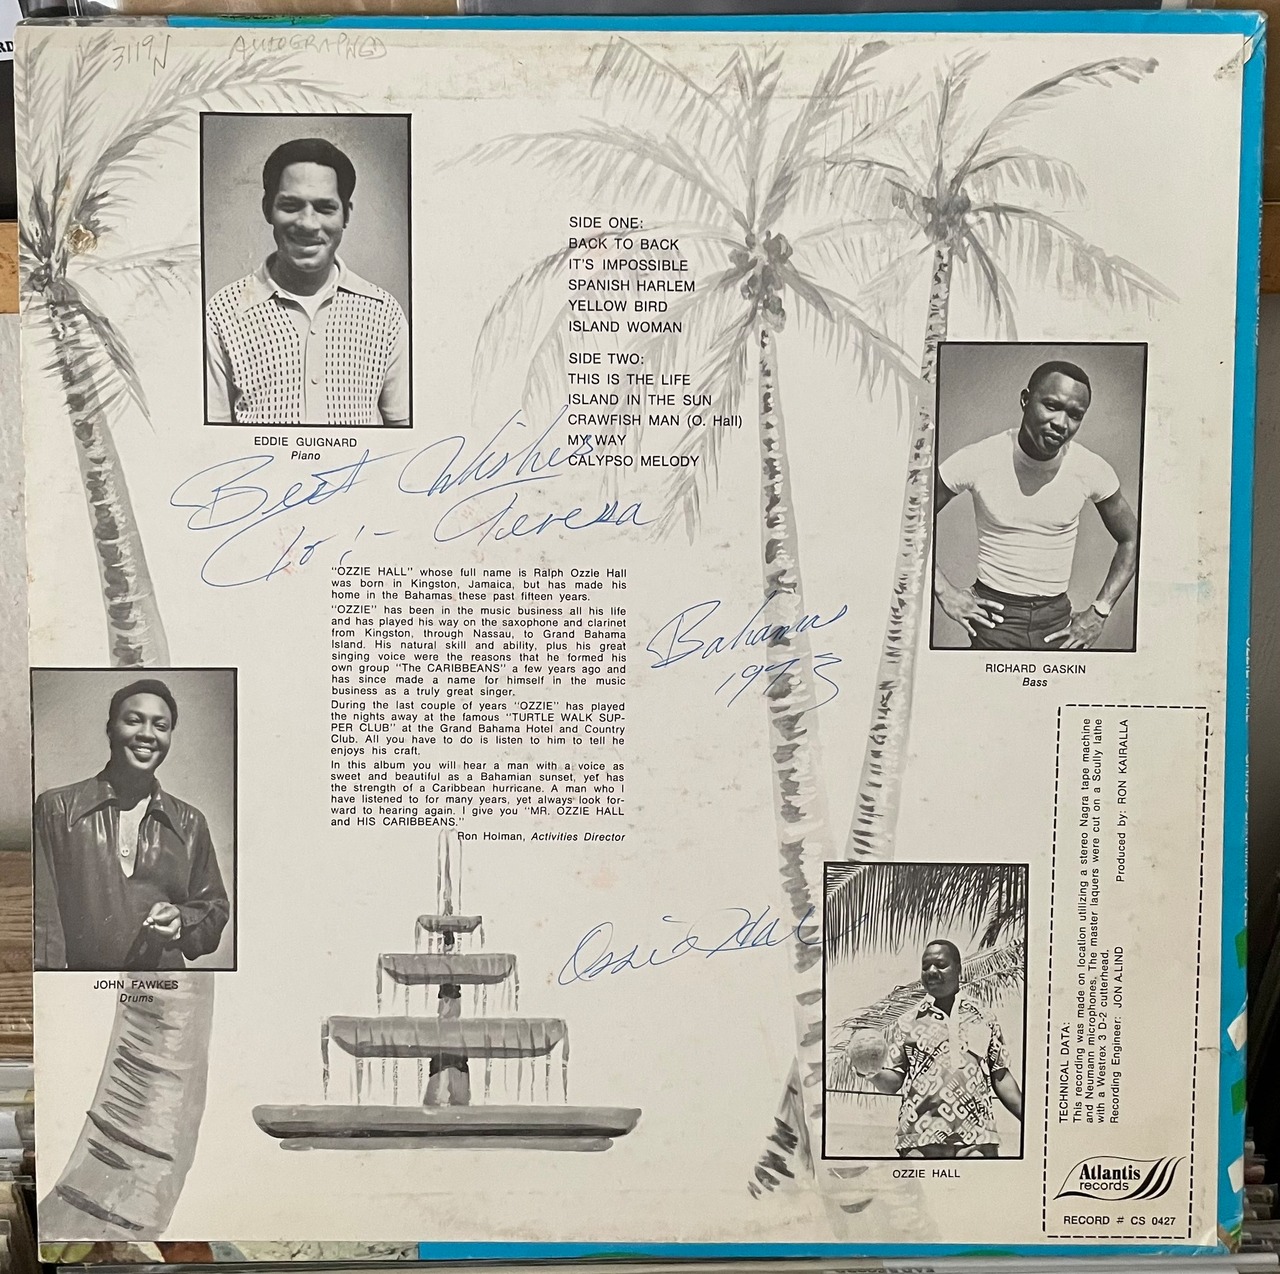 3119N AUTOGRAPHED
SIDE ONE:
BACK TO BACK
IT'S IMPOSSIBLE
SPANISH HARLEM
YELLOW BIRD
ISLAND WOMAN
SIDE TWO:
THIS IS THE LIFE
ISLAND IN THE SUN
CRAWFISH MAN (O. Hall)
MY WAY
CALYPSO MELODY
EDDIE GUIGNARD
Piano
Best Wishes
To:- Teresa
Bahamas
1973
"OZZIE HALL" whose full name is Ralph Ozzie Hall
was born in Kingston, Jamaica, but has made his
home in the Bahamas these past fifteen years.
"OZZIE" has been in the music business all his life
and has played his way on the saxophone and clarinet
from Kingston, through Nassau, to Grand Bahama
Island. His natural skill and ability, plus his great
singing voice were the reasons that he formed his
own group "The CARIBBEANS" a few years ago and
has since made a name for himself in the music
business as a truly great singer.
During the last couple of years "OZZIE" has played
the nights away at the famous "TURTLE WALK SUP-
PER CLUB" at the Grand Bahama Hotel and Country
Club. All you have to do is listen to him to tell he
enjoys his craft.
In this album you will hear a man with a voice as
sweet and beautiful as a Bahamian sunset, yet has
the strength of a Caribbean hurricane. A man who I
have listened to for many years, yet always look for-
ward to hearing again. I give you "MR. OZZIE HALL
and HIS CARIBBEANS."
Ron Holman, Activities Director
RICHARD GASKIN
Bass
JOHN FAWKES
Drums
Ozzie Hall
OZZIE HALL
TECHNICAL DATA:
This recording was made on location utilizing a stereo Nagra tape machine
and Neumann microphones. The master laquers were cut on a Scully lathe
with a Westrex 3 D-2 cutterhead.
Recording Engineer: JON A.LIND Produced by: RON KAIRALLA
Atlantis
records
RECORD # CS 0427